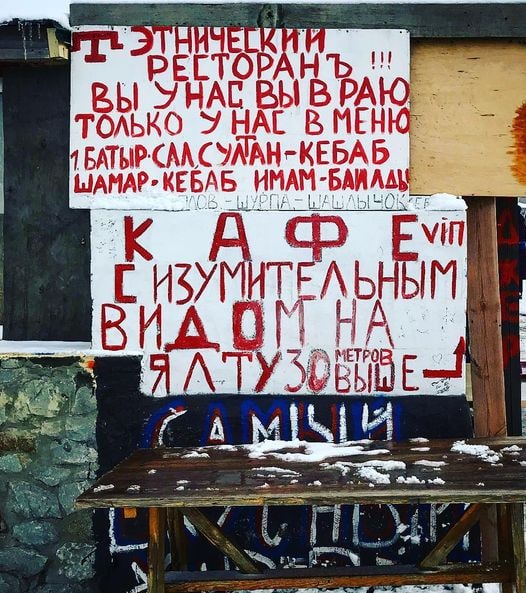 Т ЭТНИЧЕСКИЙ
РЕСТОРАНЪ !!!
ВЫ У НАС, ВЫ В РАЮ
ТОЛЬКО У НАС В МЕНЮ
1. БАТЫР-САЛ, СУЛТАН-КЕБАБ
ШАМАР-КЕБАБ ИМАМ-БАИЛДЫ
ПЛОВ.-ШУРПА-ШАШЛЫЧОК
КАФЕ vin
С ИЗУМИТЕЛЬНЫМ
ВИДОМ НА
ЯЛТУ 30 МЕТРОВ
ВЫШЕ
САМЫЙ